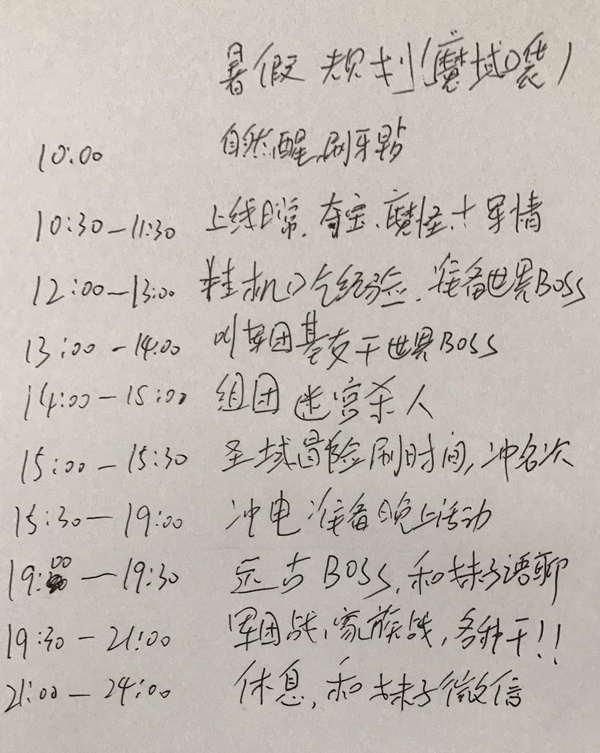 暑假 规划(魔域口袋)
10:00 自然醒,刷牙
10:30—11:30 上线日常、夺宝、魔怪、十军情
12:00—13:00 挂机吃经验、准备世界BOSS
13:00—14:00 叫军团基友干世界BOSS
14:00—15:00 组团迷宫杀人
15:00—15:30 圣域冒险刷时间,冲名次
15:30—19:00 冲电 准备晚上活动
19:00—19:30 远古BOSS,和妹子语聊
19:30—21:00 军团战,家族战,各种干!!
21:00—24:00 休息,和妹子微信